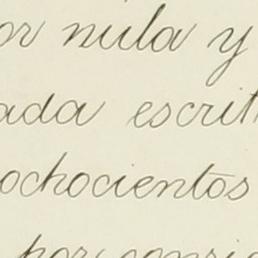 or nula y
ada escrit
ochocientos
por consi